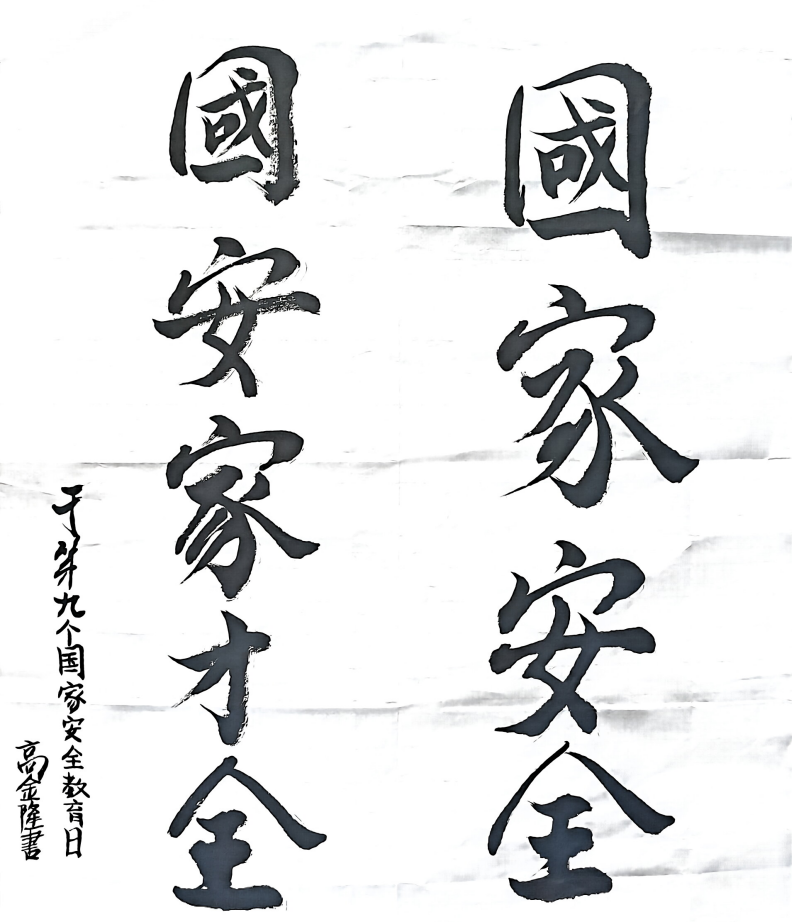 國家安全
國安家才全
于第九个国家安全教育日
高金隆書